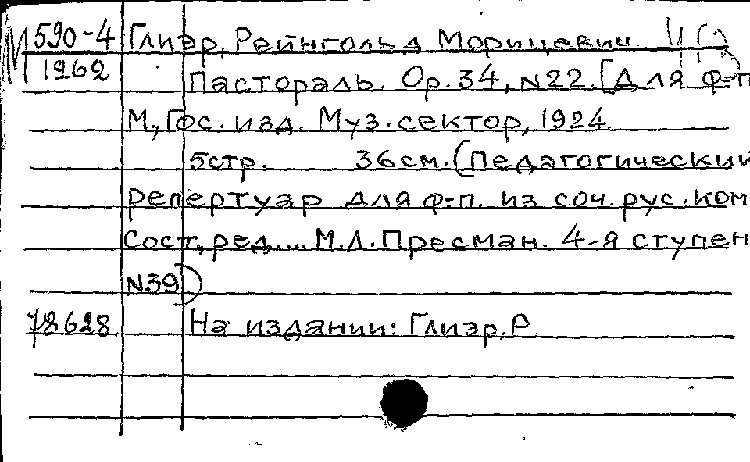 М 590-4 Глиэр, Рейнгольд Морицевич
1262 Пастораль. Ор. 34, N22. [Для ф-п
М, Гос. изд. Муз. сектор, 1924
5стр. 36см. (Педагогический
репертуар для ф-п. из соч. рус. ком
Сост, ред.... М.Л. Пресман. 4-я ступен
N39)
78628 На издании: Глиэр, Р